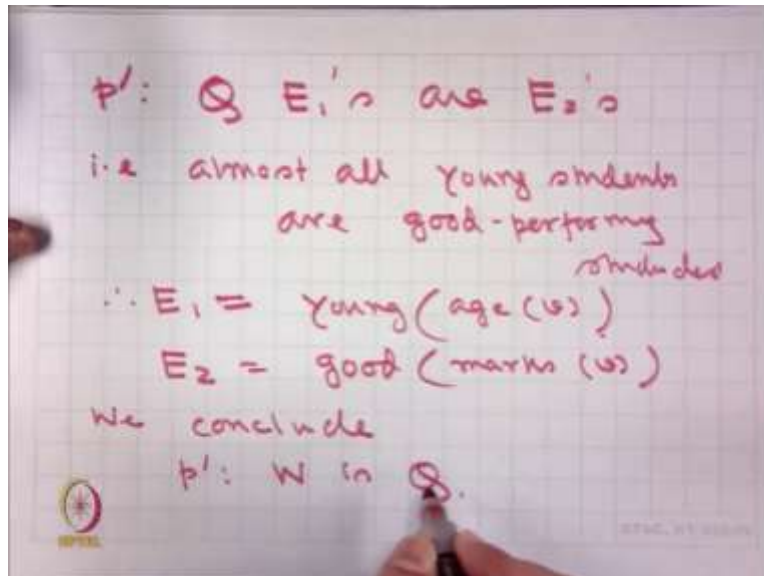 p': Q E₁'s are E₂'s
i.e almost all young students
are good-performing
students
∴ E₁ = young (age (v))
E₂ = good (marks (v))
We conclude
p': W is Q.
NPTEL